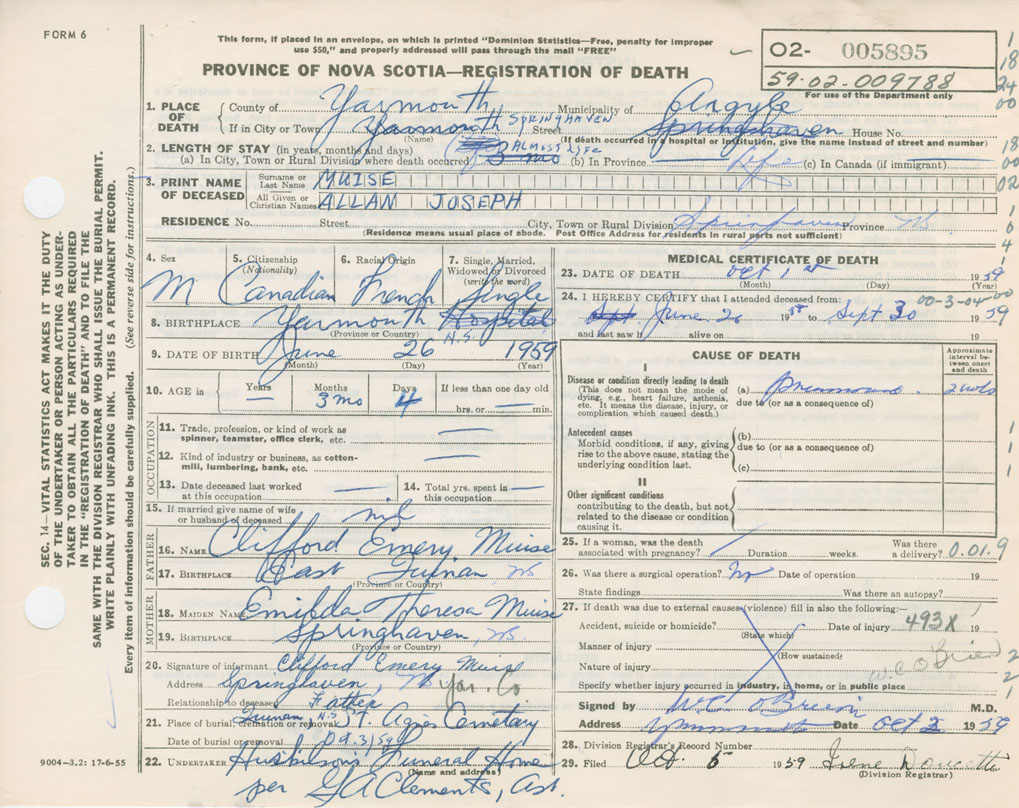 FORM 6
This form, if placed in an envelope, on which is printed "Dominion Statistics—Free, penalty for improper
use $50," and properly addressed will pass through the mail "FREE"
02- 005895
59.02-009788
For use of the Department only
PROVINCE OF NOVA SCOTIA—REGISTRATION OF DEATH
1. PLACE OF DEATH
County of Yarmouth Municipality of Argyle
If in City or Town Yarmouth SPRINGHAVEN Street Springhaven House No.
(Name) (If death occurred in a hospital or institution, give the name instead of street and number)
2. LENGTH OF STAY (in years, months and days)
(a) In City, Town or Rural Division where death occurred 3 mo ALMOST Life (b) In Province life (c) In Canada (if immigrant)
3. PRINT NAME OF DECEASED
Surname or Last Name MUISE
All Given or Christian Names ALLAN JOSEPH
RESIDENCE No. Street City, Town or Rural Division Springhaven Province NS
(Residence means usual place of abode. Post Office Address for residents in rural parts not sufficient)
4. Sex M
5. Citizenship (Nationality) Canadian
6. Racial Origin French
7. Single, Married, Widowed or Divorced (write the word) Single
8. BIRTHPLACE Yarmouth Hospital N.S.
(Province or Country)
9. DATE OF BIRTH June 26 1959
(Month) (Day) (Year)
10. AGE in Years — Months 3 mo Days 4 If less than one day old hrs. or — min.
OCCUPATION
11. Trade, profession, or kind of work as spinner, teamster, office clerk, etc. —
12. Kind of industry or business, as cotton-mill, lumbering, bank, etc. —
13. Date deceased last worked at this occupation —
14. Total yrs. spent in this occupation —
15. If married give name of wife or husband of deceased nil
FATHER
16. NAME Clifford Emery Muise
17. BIRTHPLACE East Quinan, NS
(Province or Country)
MOTHER
18. MAIDEN NAME Emilda Theresa Muise
19. BIRTHPLACE Springhaven, NS.
(Province or Country)
20. Signature of informant Clifford Emery Muise
Address Springhaven, NS Yar. Co
Relationship to deceased Father
21. Place of burial, cremation or removal Quinan, N.S St. Agnes Cemetary
Date of burial or removal Oct. 3/59
22. UNDERTAKER Huskilson's Funeral Home
(Name and address)
per G A Clements, Ast.
MEDICAL CERTIFICATE OF DEATH
23. DATE OF DEATH Oct 1st 1959
(Month) (Day) (Year)
24. I HEREBY CERTIFY that I attended deceased from: 00-3-04-00
Sept June 26 1959 to Sept 30 1959
and last saw h alive on
CAUSE OF DEATH
Approximate interval between onset and death
I
Disease or condition directly leading to death
(This does not mean the mode of dying, e.g., heart failure, asthenia, etc. It means the disease, injury, or complication which caused death.)
(a) Pneumonia
due to (or as a consequence of)
Antecedent causes
Morbid conditions, if any, giving rise to the above cause, stating the underlying condition last.
(b)
due to (or as a consequence of)
(c)
II
Other significant conditions
contributing to the death, but not related to the disease or condition causing it.
25. If a woman, was the death associated with pregnancy? Duration weeks. Was there a delivery? 0.01.9
26. Was there a surgical operation? No Date of operation 19
State findings Was there an autopsy?
27. If death was due to external causes (violence) fill in also the following:—
Accident, suicide or homicide? Date of injury 493X 19
(State which)
Manner of injury
(How sustained)
Nature of injury W.C. O'Brien
Specify whether injury occurred in industry, in home, or in public place
Signed by W.C. O'Brien M.D.
Address Yarmouth Date Oct 2 1959
28. Division Registrar's Record Number
29. Filed Oct. 5 1959 Irene Doucette
(Division Registrar)
SEC. 14—VITAL STATISTICS ACT MAKES IT THE DUTY
OF THE UNDERTAKER OR PERSON ACTING AS UNDER-
TAKER TO OBTAIN ALL THE PARTICULARS REQUIRED
IN THE "REGISTRATION OF DEATH" AND TO FILE THE
SAME WITH THE DIVISION REGISTRAR WHO SHALL ISSUE THE BURIAL PERMIT.
WRITE PLAINLY WITH UNFADING INK. THIS IS A PERMANENT RECORD.
Every item of information should be carefully supplied. (See reverse side for instructions.)
9004-3.2: 17-6-55
1
18
24
00
18
00
02
1
0
4
1
1
1
2
2
1